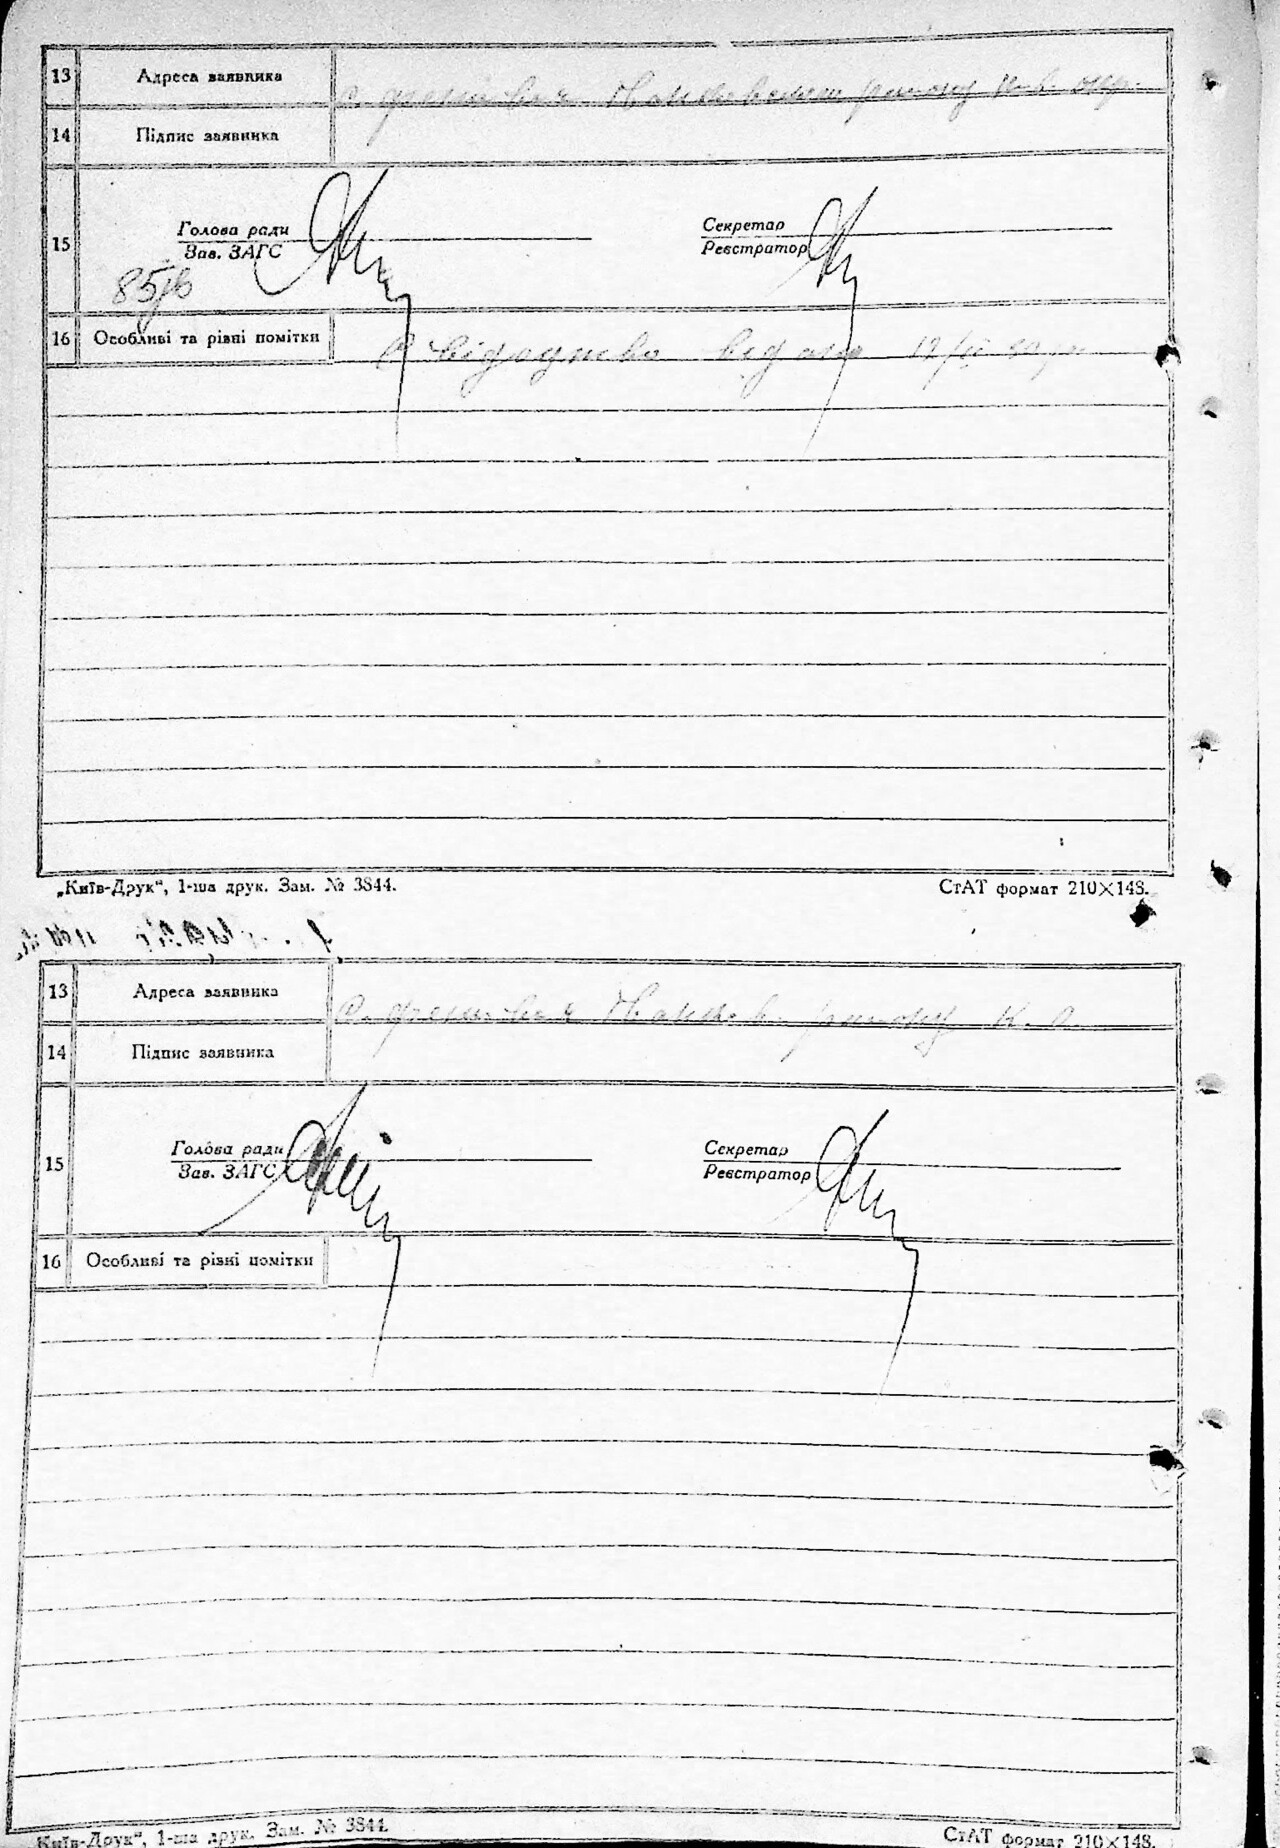 13 Адреса заявника с. району
14 Підпис заявника
15 Голова ради Секретар
Зав. ЗАГС Реєстратор
16 Особливі та різні помітки Свідоцтво видано
„Київ-Друк“, 1-ша друк. Зам. № 3844. СтАТ формат 210×148.
13 Адреса заявника с. району К. О.
14 Підпис заявника
15 Голова ради Секретар
Зав. ЗАГС Реєстратор
16 Особливі та різні помітки
Київ-Друк“, 1-ша друк. Зам. № 3844. СтАТ формат 210×148.